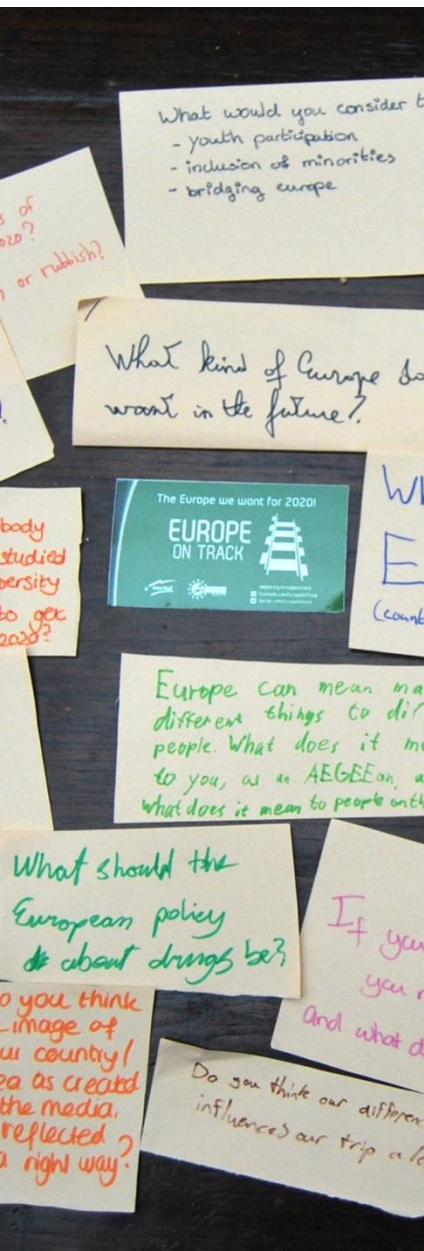 What would you consider t
- youth participation
- inclusion of minorities
- bridging europe
s of
2020?
or rubbish?
What kind of Europe do
want in the future?
?
The Europe we want for 2020!
EUROPE
ON TRACK
Wh
E
(count
body
studied
versity
to get
2020?
Europe can mean ma
different things to dif
people. What does it me
to you, as an AEGEEan, a
what does it mean to people on th
What should the
European policy
about drugs be?
If you
you r
and what d
o you think
image of
ur country/
ea as created
the media,
reflected
a right way?
Do you think our differen
influences our trip a lo